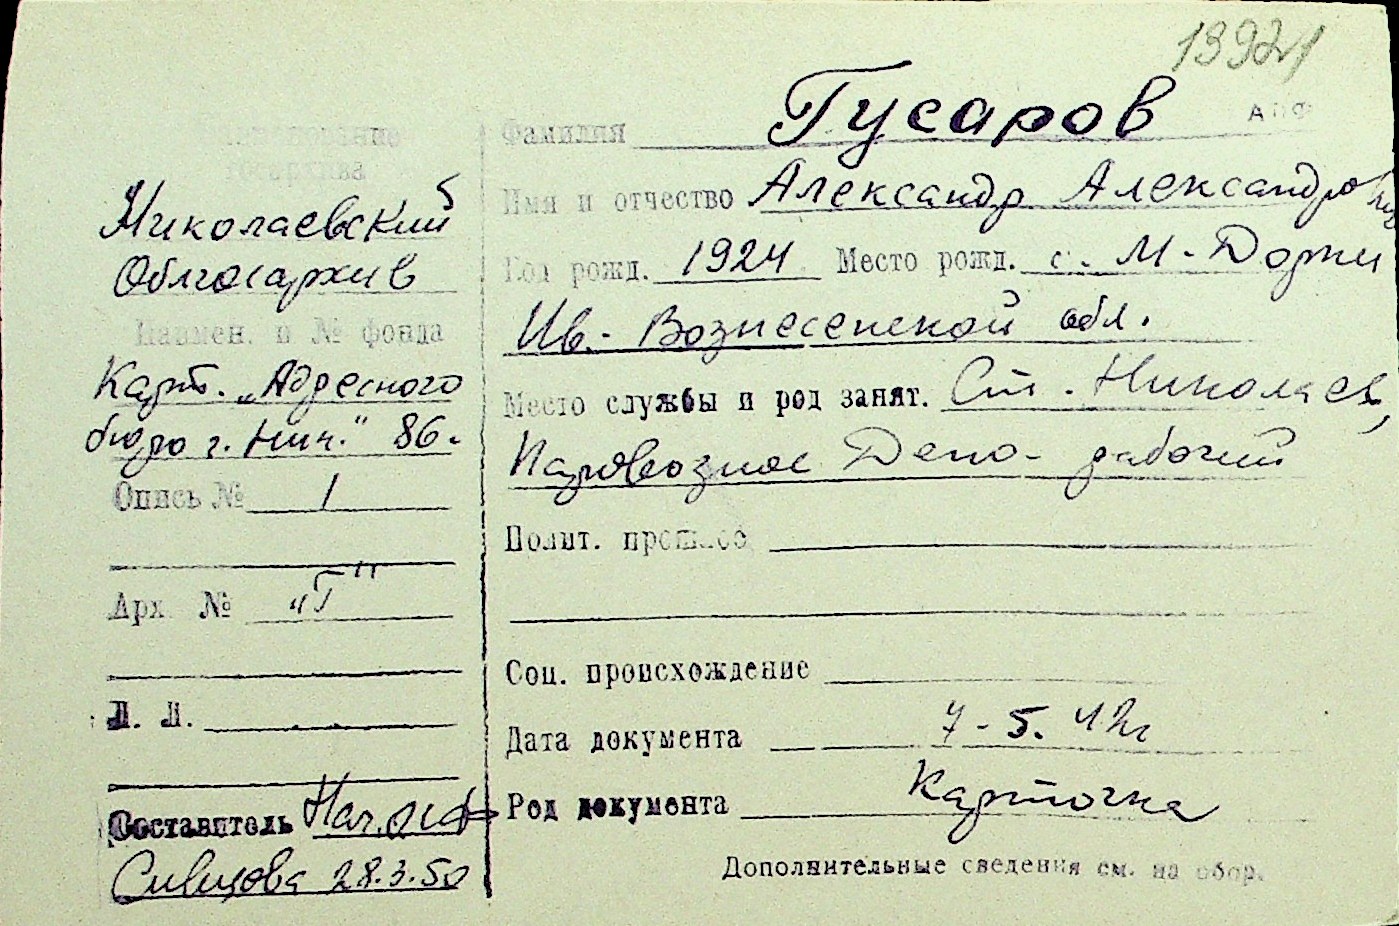 13921
Наименование
госархива
Николаевский
Облгосархив
Наимен. и № фонда
Карт. „Адресного
бюро г. Ник." 86.
Опись № 1
Арх № „Г"
Л. Л.
Составитель Нач. ОИФ
Сивцова 28.3.50
Фамилия Гусаров
Имя и отчество Александр Александрович
Год рожд. 1924 Место рожд. с. М-Дорки
Ив.-Вознесенской обл.
Место службы и род занят. Ст. Николаев,
Паровозное Депо- рабочий
Полит. прошлое
Соц. происхождение
Дата документа 7-5. 42г
Род документа Карточка
Дополнительные сведения см. на обор.